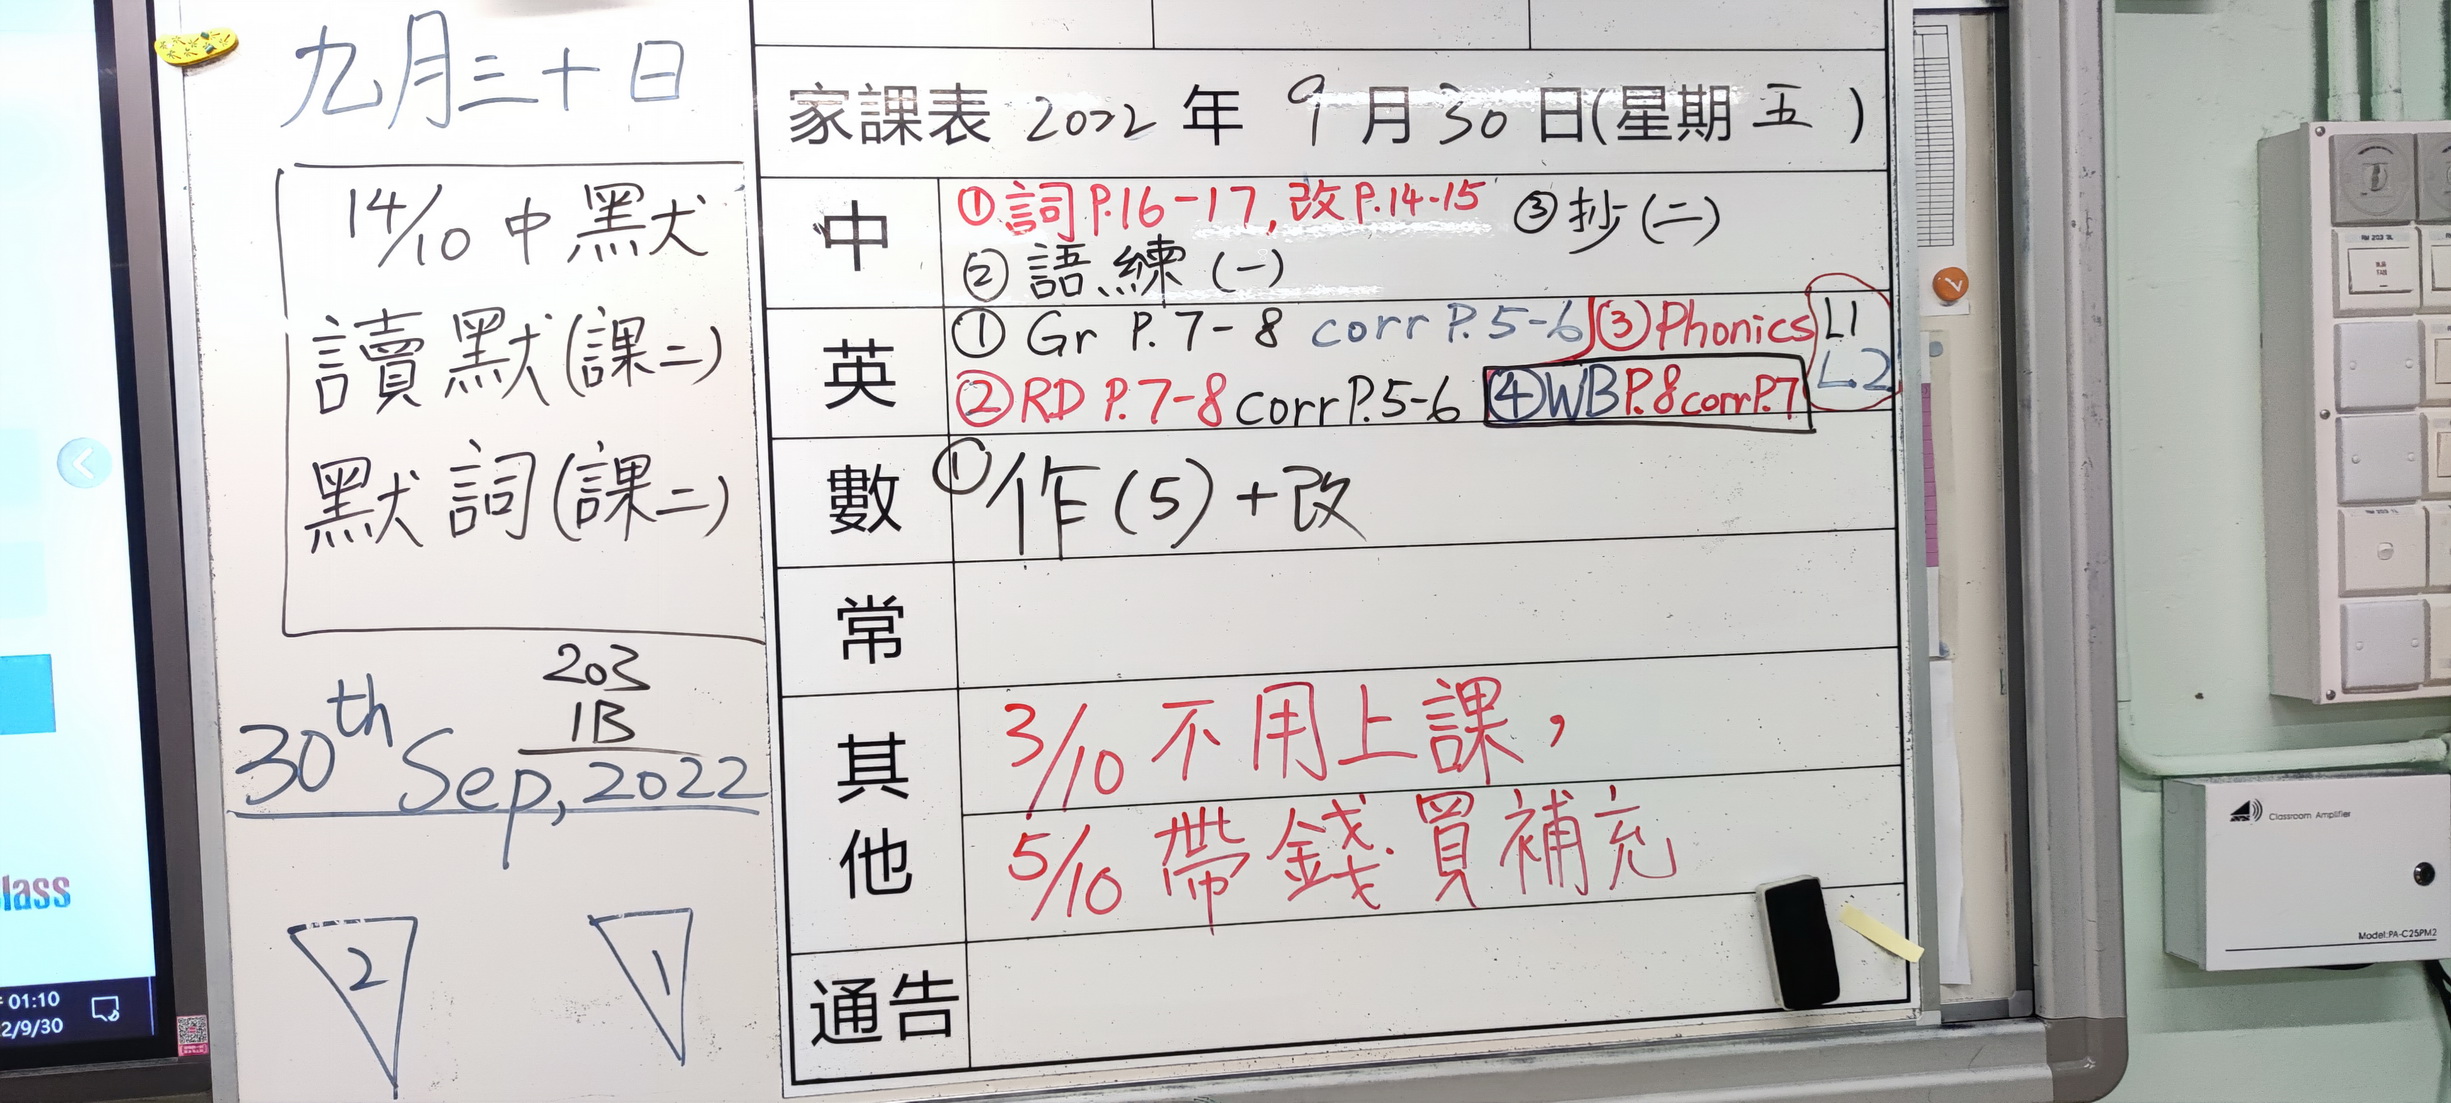 九月三十日
14/10 中默
讀默(課二)
默詞(課二)
203
1B
30th Sep, 2022
2
1
家課表 2022 年 9 月 30 日(星期 五 )
中
① 詞 P.16-17, 改 P.14-15 ③ 抄(二)
② 語練(一)
英
① Gr P.7-8 corr P.5-6 ③ Phonics L1
L2
② RD P.7-8 corr P.5-6 ④ WB P.8 corr P.7
數
① 作(5)+改
常
其他
3/10 不用上課,
5/10 帶錢買補充
通告
lass
01:10
2/9/30
Classroom Amplifier
Model:PA-C25PM2